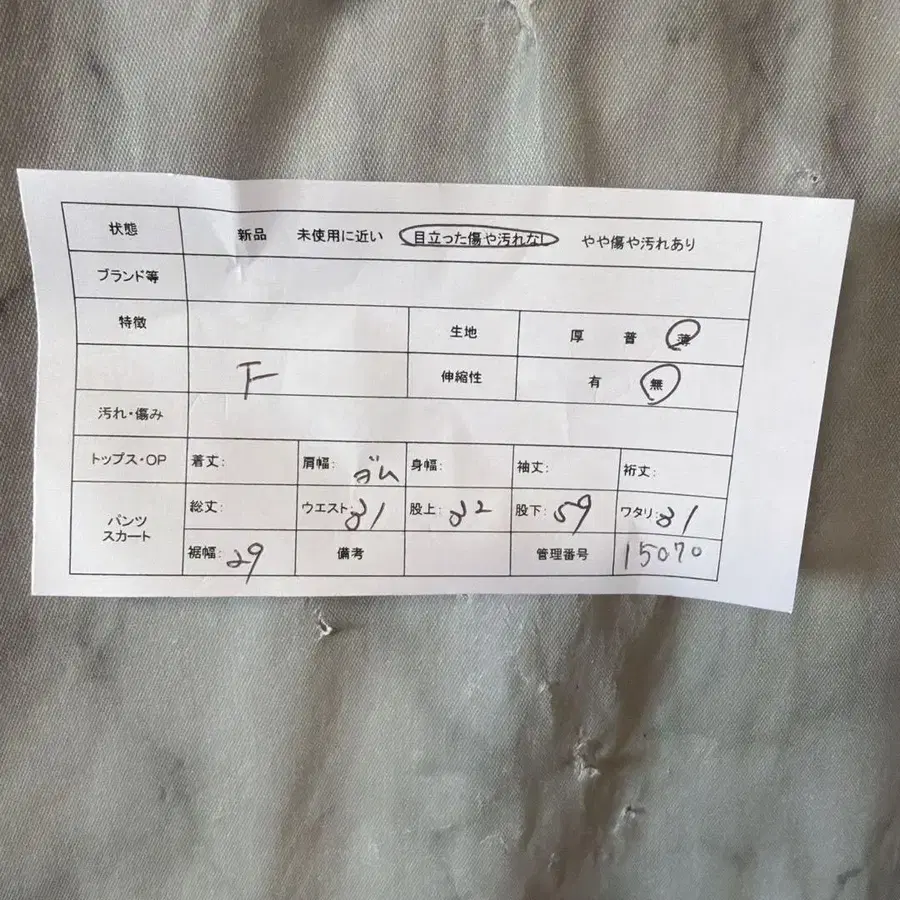 状態 新品 未使用に近い 目立った傷や汚れなし やや傷や汚れあり
ブランド等
特徴 生地 厚 普 薄
F 伸縮性 有 無
汚れ・傷み
トップス・OP 着丈: 肩幅: 身幅: 袖丈: 裄丈:
ゴム
パンツ スカート 総丈: ウエスト: 31 股上: 32 股下: 59 ワタリ: 31
裾幅: 29 備考 管理番号 15070